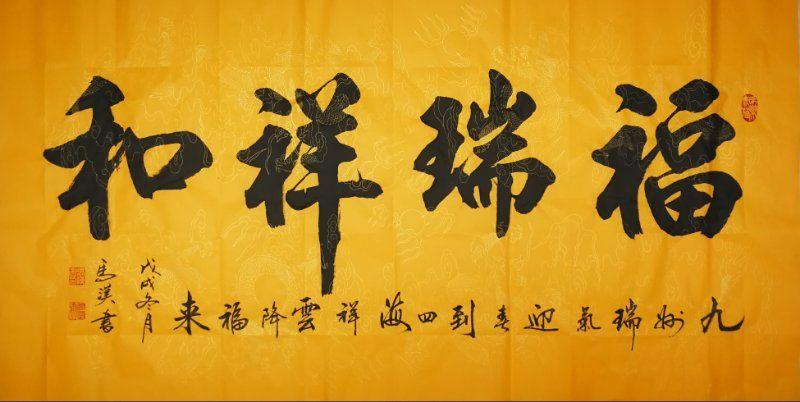 福瑞祥和
九州瑞氣迎春到四海祥雲降福来
戊戌冬月
馬漢書